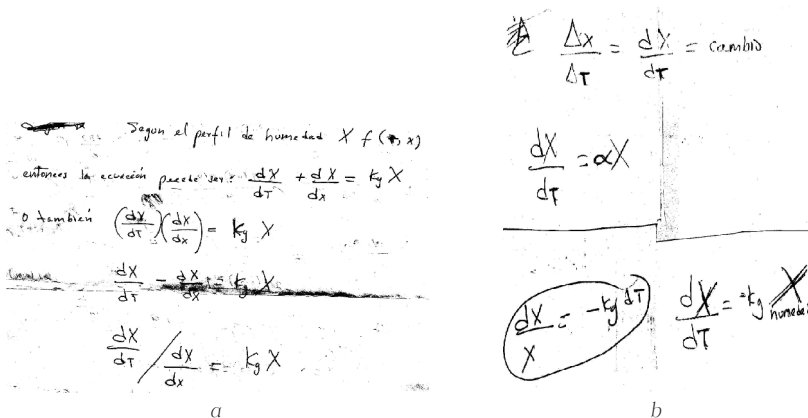 Segun el perfil de humedad X f ( , x)
entonces la ecuación puede ser: dX/dT + dX/dx = kg X
o también (dX/dT)(dX/dx) = kg X
dX/dT - dX/dx = kg X
dX/dT / dX/dx = kg X
a
Δx/ΔT = dX/dT = cambio
dX/dT = αX
dX/X = -kg dT
dX/dT = -kg X
humedad
b